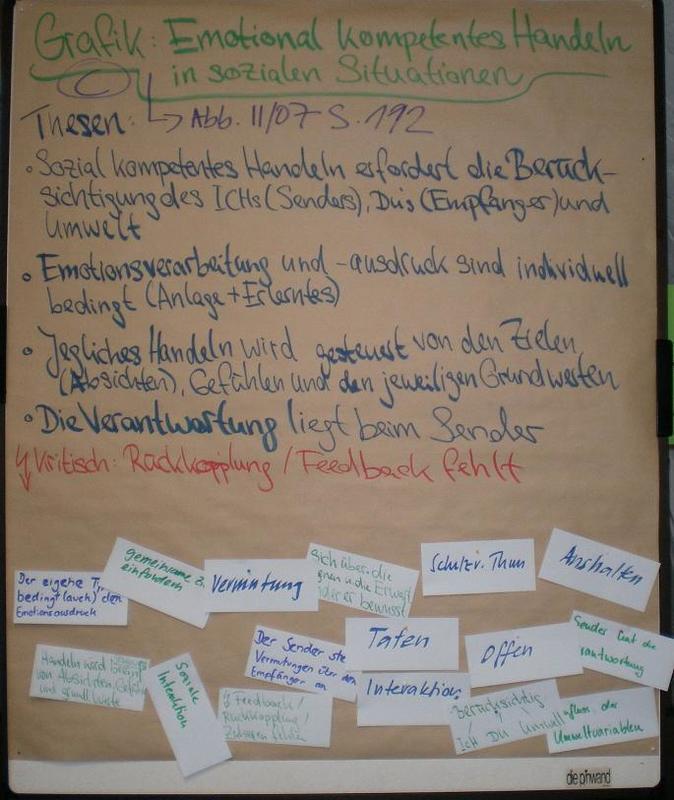 Grafik: Emotional kompetentes Handeln
in sozialen Situationen
Thesen: → Abb. II/07 S. 192
• Sozial kompetentes Handeln erfordert die Berück-
sichtigung des ICHs (Senders), Du's (Empfänger) und
Umwelt
• Emotionsverarbeitung und -ausdruck sind individuell
bedingt (Anlage + Erlerntes)
• Jegliches Handeln wird gesteuert von den Zielen
(Absichten), Gefühlen und den jeweiligen Grundwerten
• Die Verantwortung liegt beim Sender
Kritisch: Rückkopplung / Feedback fehlt
Der eigene
bedingt (auch) den
Emotionsausdruck
gemeinsame
einfordern
Vermutung
sich über die
bewusst
Schulz v. Thun
Anshalten
Handeln wird
von Absichten, Gefühl
und grund Werte
Soziale
Interaktion
Der Sender
Vermutungen über den
Empfänger an
Feedback /
Rückkopplung /
Taten
Interaktion
Offen
Sender hat die
antwortung
Berücksichtig
Ich Du Umwelt
der
Umweltvariablen
die pinwand